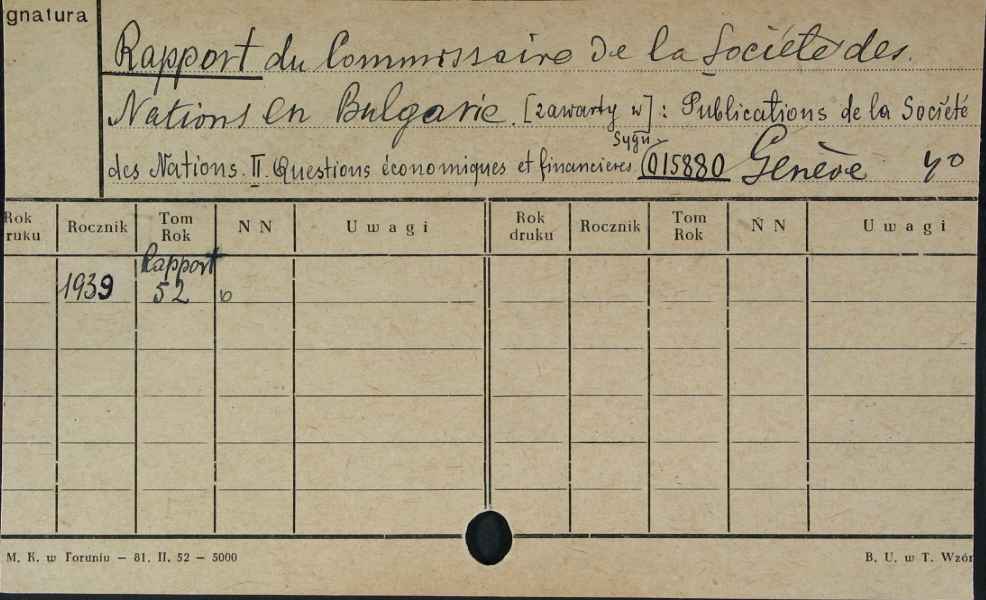 gnatura
Rapport du Commissaire de la Société des
Nations en Bulgarie. [zawarty w] : Publications de la Société
Sygn.
des Nations. II. Questions économiques et financieres. (015880 Genève 4o
Rok ruku Rocznik Tom Rok N N Uwagi Rok druku Rocznik Tom Rok N N Uwagi
Rapport
1939 52
M. K. w Toruniu — 81. II. 52 — 5000 B. U. w T. Wzór